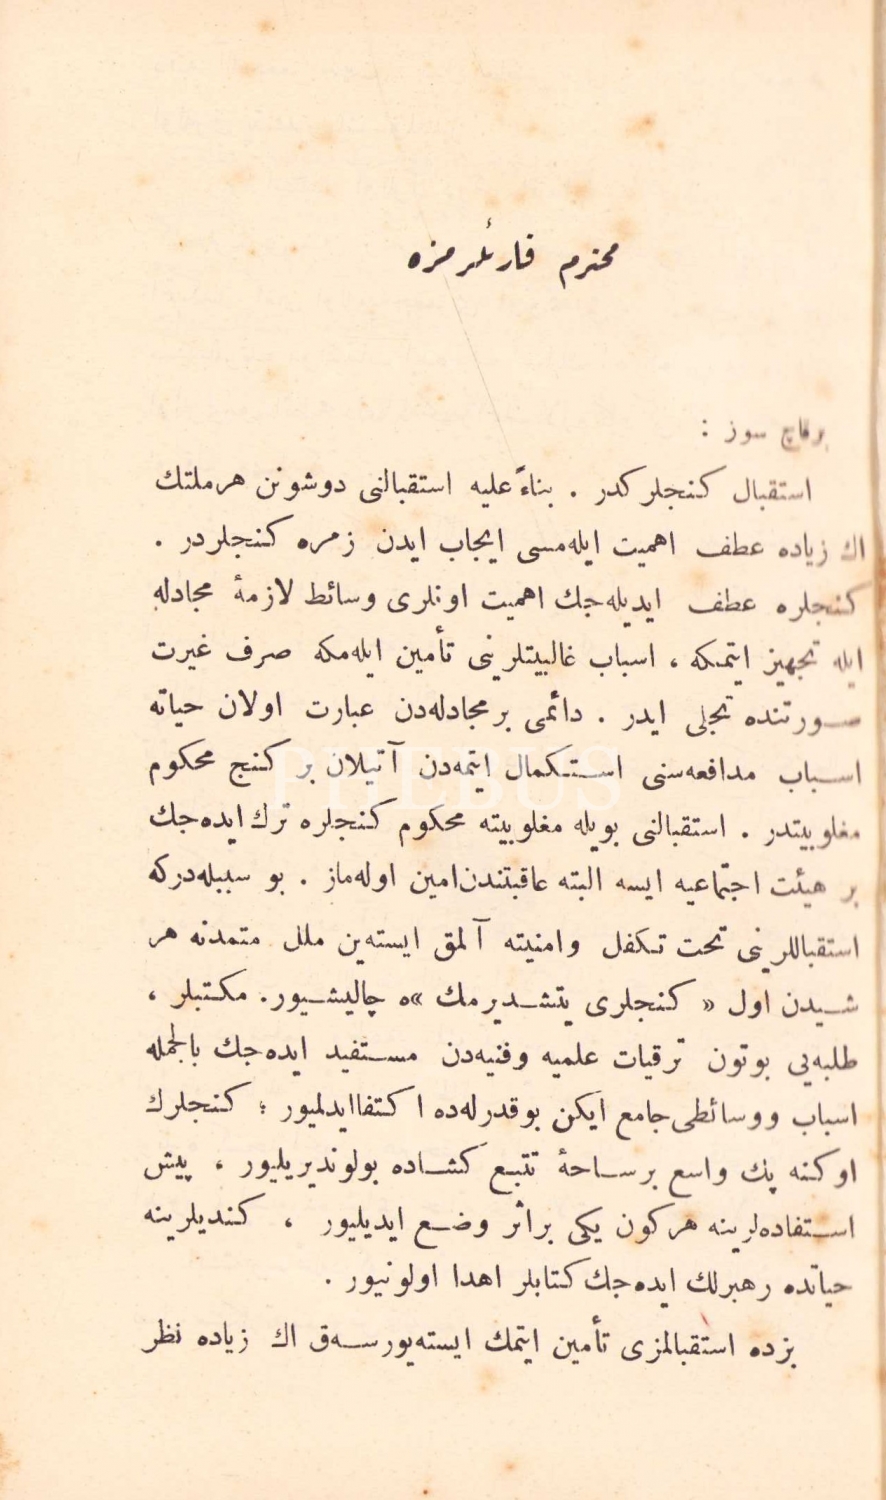 محترم قارئلرمزه
برقاچ سوز :
استقبال كنجلركدر . بناءً عليه استقبالنى دوشونن هرملتك
اك زياده عطف اهميت ايلهمسى ايجاب ايدن زمره كنجلردر .
كنجلره عطف ايديلهجك اهميت اونلرى وسائط لازمۀ مجادله
ايله تجهيز ايتمكه ، اسباب غالبيتلرينى تأمين ايلهمكه صرف غيرت
صورتنده تجلى ايدر . دائمى برمجادلهدن عبارت اولان حياته
اسباب مدافعهسنى استكمال ايتمهدن آتيلان بر كنج محكوم
مغلوبيتدر . استقبالنى بويله مغلوبيته محكوم كنجلره ترك ايدهجك
بر هيئت اجتماعيه ايسه البته عاقبتندن امين اولهماز . بو سببلهدركه
استقباللرينى تحت تكفل وامنيته آلمق ايستهين ملل متمدنه هر
شيدن اول « كنجلرى يتشديرمك »ه چاليشيور. مكتبلر ،
طلبهيى بوتون ترقيات علميه وفنيهدن مستفيد ايدهجك بالجمله
اسباب ووسائطى جامع ايكن بوقدرلهده اكتفا ايدلميور ؛ كنجلرك
اوكنه پك واسع برساحۀ تتبع كشاده بولونديريليور ، پيش
استفادهلرينه هركون يكى براثر وضع ايديليور ، كنديلرينه
حياتده رهبرلك ايدهجك كتابلر اهدا اولونيور .
بزده استقبالمزى تأمين ايتمك ايستهيورسهق اك زياده نظر
PHEBUS